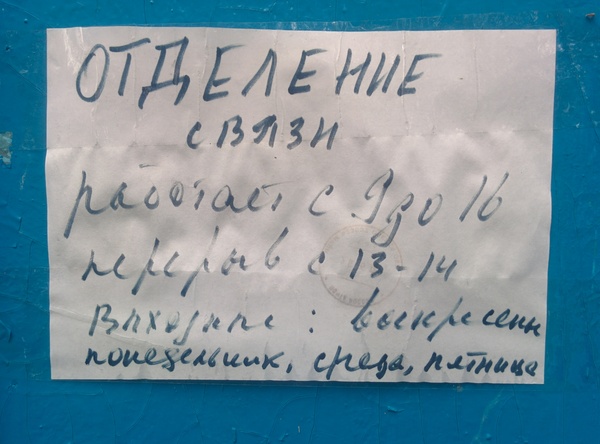 ОТДЕЛЕНИЕ
связи
работает с 9 до 16
перерыв с 13-14
Выходные : воскресень
понедельник, среда, пятница